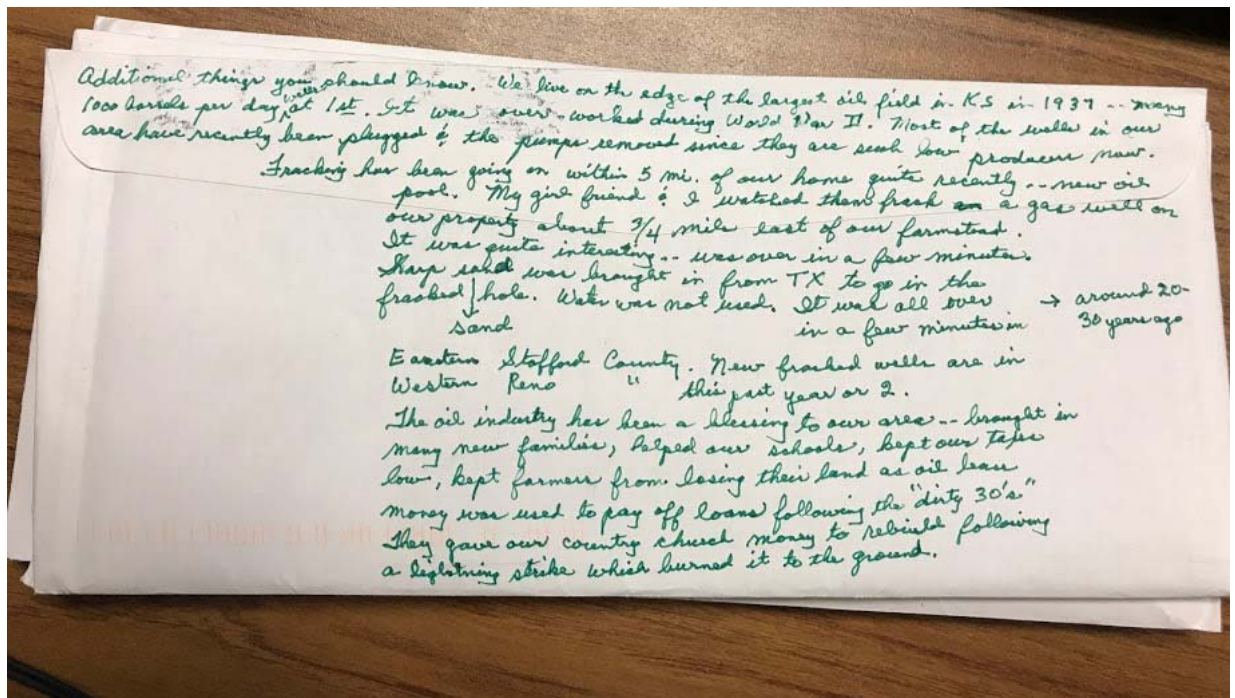 Additional things you should know. We live on the edge of the largest oil field in KS in 1937 -- many
1000 barrels per day wells at 1st. It was over-worked during World War II. Most of the wells in our
area have recently been plugged & the pumps removed since they are such low producers now.
Fracking has been going on within 5 mi. of our home quite recently -- new oil
pool. My girl friend & I watched them frack a gas well on
our property about 3/4 mile east of our farmstead.
It was quite interesting -- was over in a few minutes.
Sharp sand was brought in from TX to go in the
fracked hole. Water was not used. It was all over → around 20-
sand in a few minutes in 30 years ago
Eastern Stafford County. New fracked wells are in
Western Reno " this past year or 2.
The oil industry has been a blessing to our area -- brought in
many new families, helped our schools, kept our taxes
low, kept farmers from losing their land as oil lease
money was used to pay off loans following the "dirty 30's."
They gave our country church money to rebiuld following
a lightning strike which burned it to the ground.